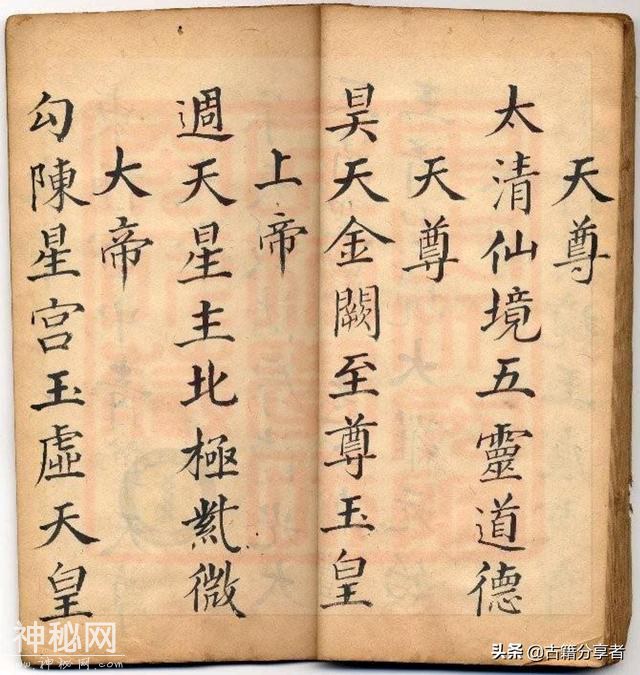 天尊
太清仙境五靈道德
天尊
昊天金闕至尊玉皇
上帝
週天星主北極紫微
大帝
勾陳星宮玉虛天皇
神秘网
www.神秘网.com
头条 @古籍分享者